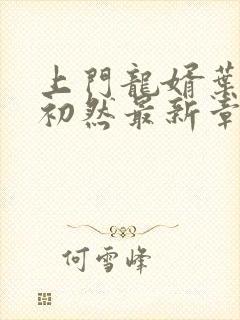 上門龍婿葉
初然最新章
何雪峰